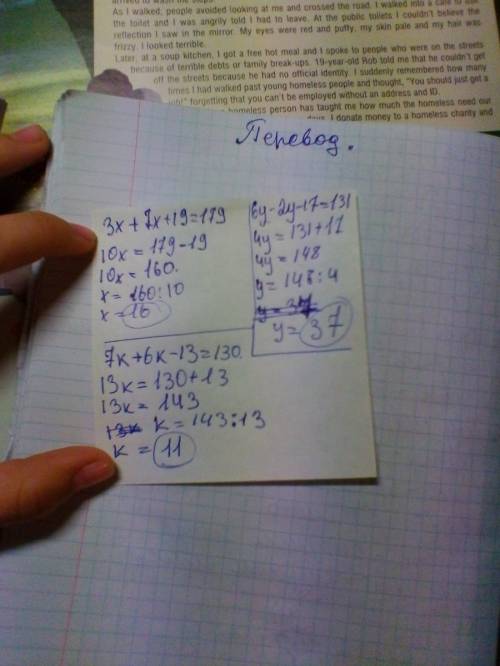 As I walked, people avoided looking at me and crossed the road. I walked into a café to use
the toilet and I was angrily told I had to leave. At the public toilets I couldn't believe the
reflection I saw in the mirror. My eyes were red and puffy, my skin pale and my hair was
frizzy. I looked terrible.
Later, at a soup kitchen, I got a free hot meal and I spoke to people who were on the streets
because of terrible debts or family break-ups. 19-year-old Rob told me that he couldn't get
off the streets because he had no official identity. I suddenly remembered how many
times I had walked past young homeless people and thought, "You should just get a
job!" forgetting that you can't be employed without an address and ID.
homeless person has taught me how much the homeless need our
I donate money to a homeless charity and
Перевод.
3x + 7x + 19 = 179
10x = 179 - 19
10x = 160.
x = 160 : 10
x = 16
6y - 2y - 17 = 131
4y = 131 + 17
4y = 148
y = 148 : 4
y = 37
y = 37
7к + 6к - 13 = 130.
13к = 130 + 13
13к = 143
13к к = 143 : 13
к = 11